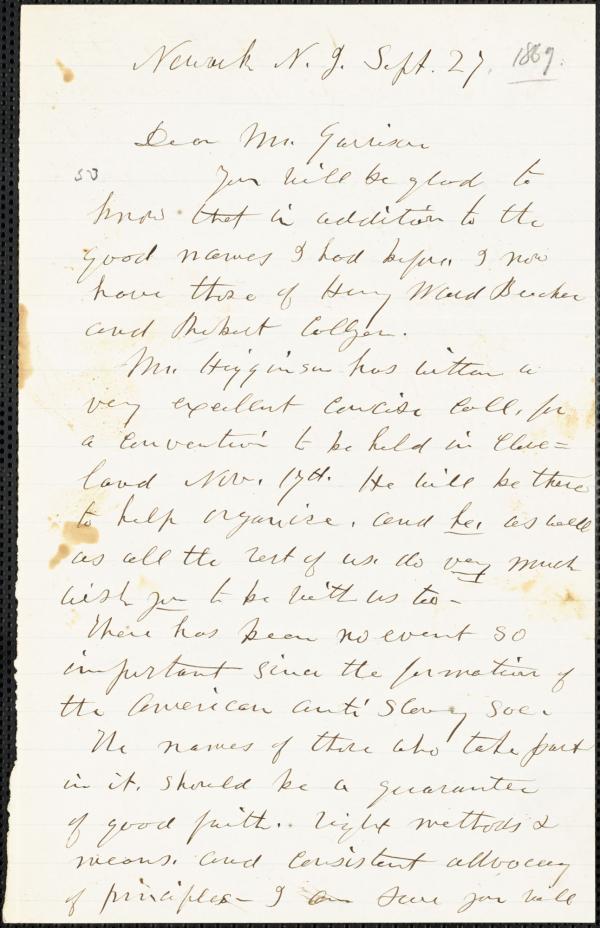 Newark N. J. Sept. 27. 1869.
Dear Mr. Garrison
53
You will be glad to
know that in addition to the
good names I had before, I now
have those of Henry Ward Beecher
and Robert Collyer.
Mr. Higginson has written a
very excellent concise call, for
a convention to be held in Cleve=
land Nov. 17th. He will be there
to help organize, and he, as well
as all the rest of us, do very much
wish you to be with us too -
There has been no event so
important since the formation of
the American Anti Slavery Soc.
The names of those who take part
in it, should be a guarantee
of good faith, right methods &
means, and consistent advocacy
of principles - I am sure you will